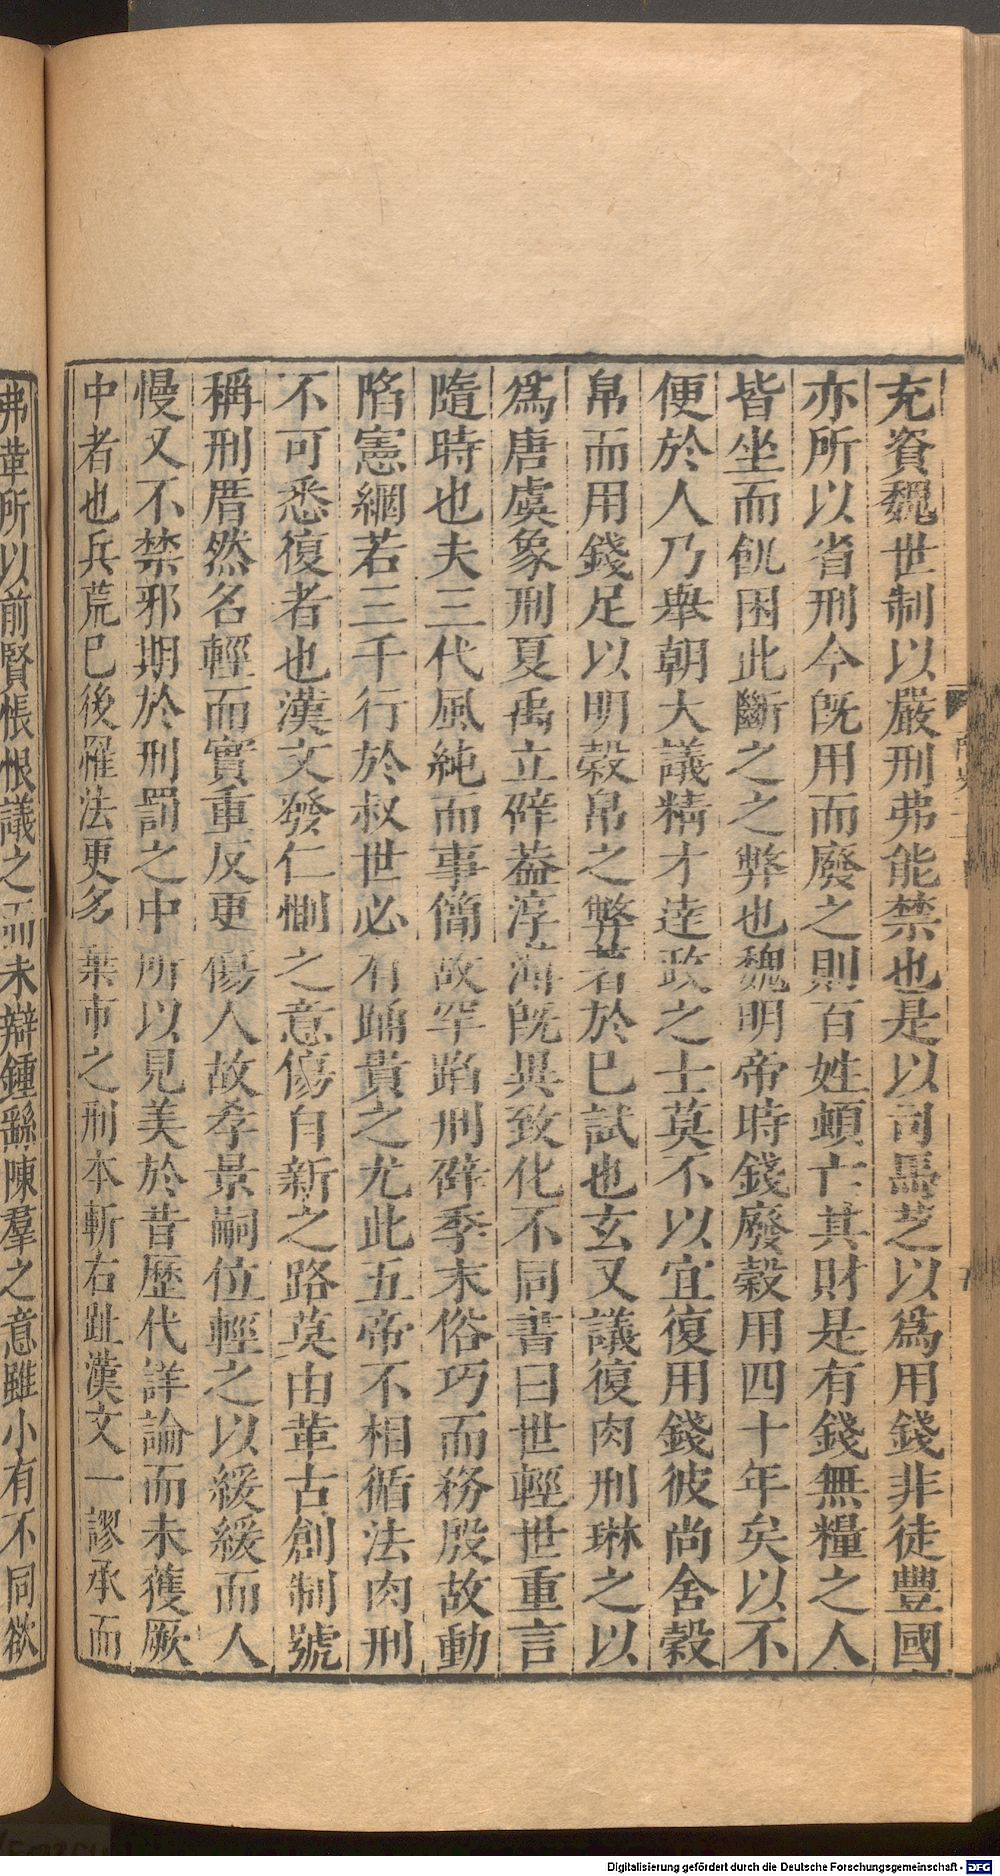 充資魏世制以嚴刑弗能禁也是以司馬芝以爲用錢非徒豐國
亦所以省刑今旣用而廢之則百姓頓亡其財是有錢無糧之人
皆坐而飢困此斷之之弊也魏明帝時錢廢穀用四十年矣以不
便於人乃舉朝大議精才達政之士莫不以宜復用錢彼尚舍穀
帛而用錢足以明穀帛之弊著於已試也玄又議復肉刑琳之以
爲唐虞象刑夏禹立辟葢淳薄旣異致化不同書曰世輕世重言
隨時也夫三代風純而事簡故罕蹈刑辟季末俗巧而務殷故動
陷憲網若三千行於叔世必有踊貴之尤此五帝不相循法肉刑
不可悉復者也漢文發仁惻之意傷自新之路莫由革古創制號
稱刑厝然名輕而實重反更傷人故孝景嗣位輕之以緩緩而人
慢又不禁邪期於刑罰之中所以見美於昔歷代詳論而未獲厥
中者也兵荒已後罹法更多棄市之刑本斬右趾漢文一謬承而
弗革所以前賢悵恨議之而未辯鍾繇陳羣之意雖小有不同欲
Digitalisierung gefördert durch die Deutsche Forschungsgemeinschaft - DFG